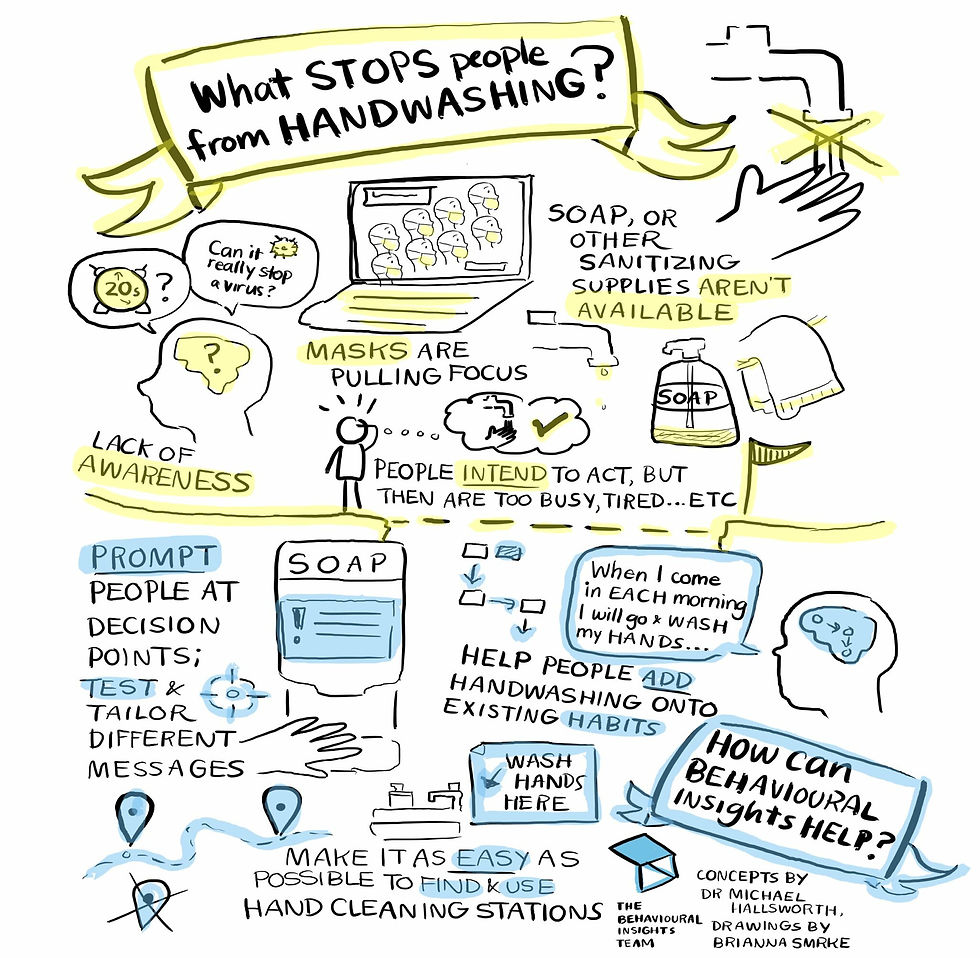 What STOPS people
from HANDWASHING?
20s
?
Can it
really stop
a virus?
?
LACK OF
AWARENESS
MASKS ARE
PULLING FOCUS
SOAP, OR
OTHER
SANITIZING
SUPPLIES AREN'T
AVAILABLE
SOAP
PEOPLE INTEND TO ACT, BUT
THEN ARE TOO BUSY, TIRED...ETC
PROMPT
PEOPLE AT
DECISION
POINTS;
TEST &
TAILOR
DIFFERENT
MESSAGES
SOAP
!
When I come
in EACH morning
I will go & WASH
my HANDS...
HELP PEOPLE ADD
HANDWASHING ONTO
EXISTING HABITS
HOW CAN
BEHAVIOURAL
INSIGHTS HELP?
WASH
HANDS
HERE
MAKE IT AS EASY AS
POSSIBLE TO FIND & USE
HAND CLEANING STATIONS
THE
BEHAVIOURAL
INSIGHTS
TEAM
CONCEPTS BY
DR MICHAEL
HALLSWORTH,
DRAWINGS BY
BRIANNA SMRKE